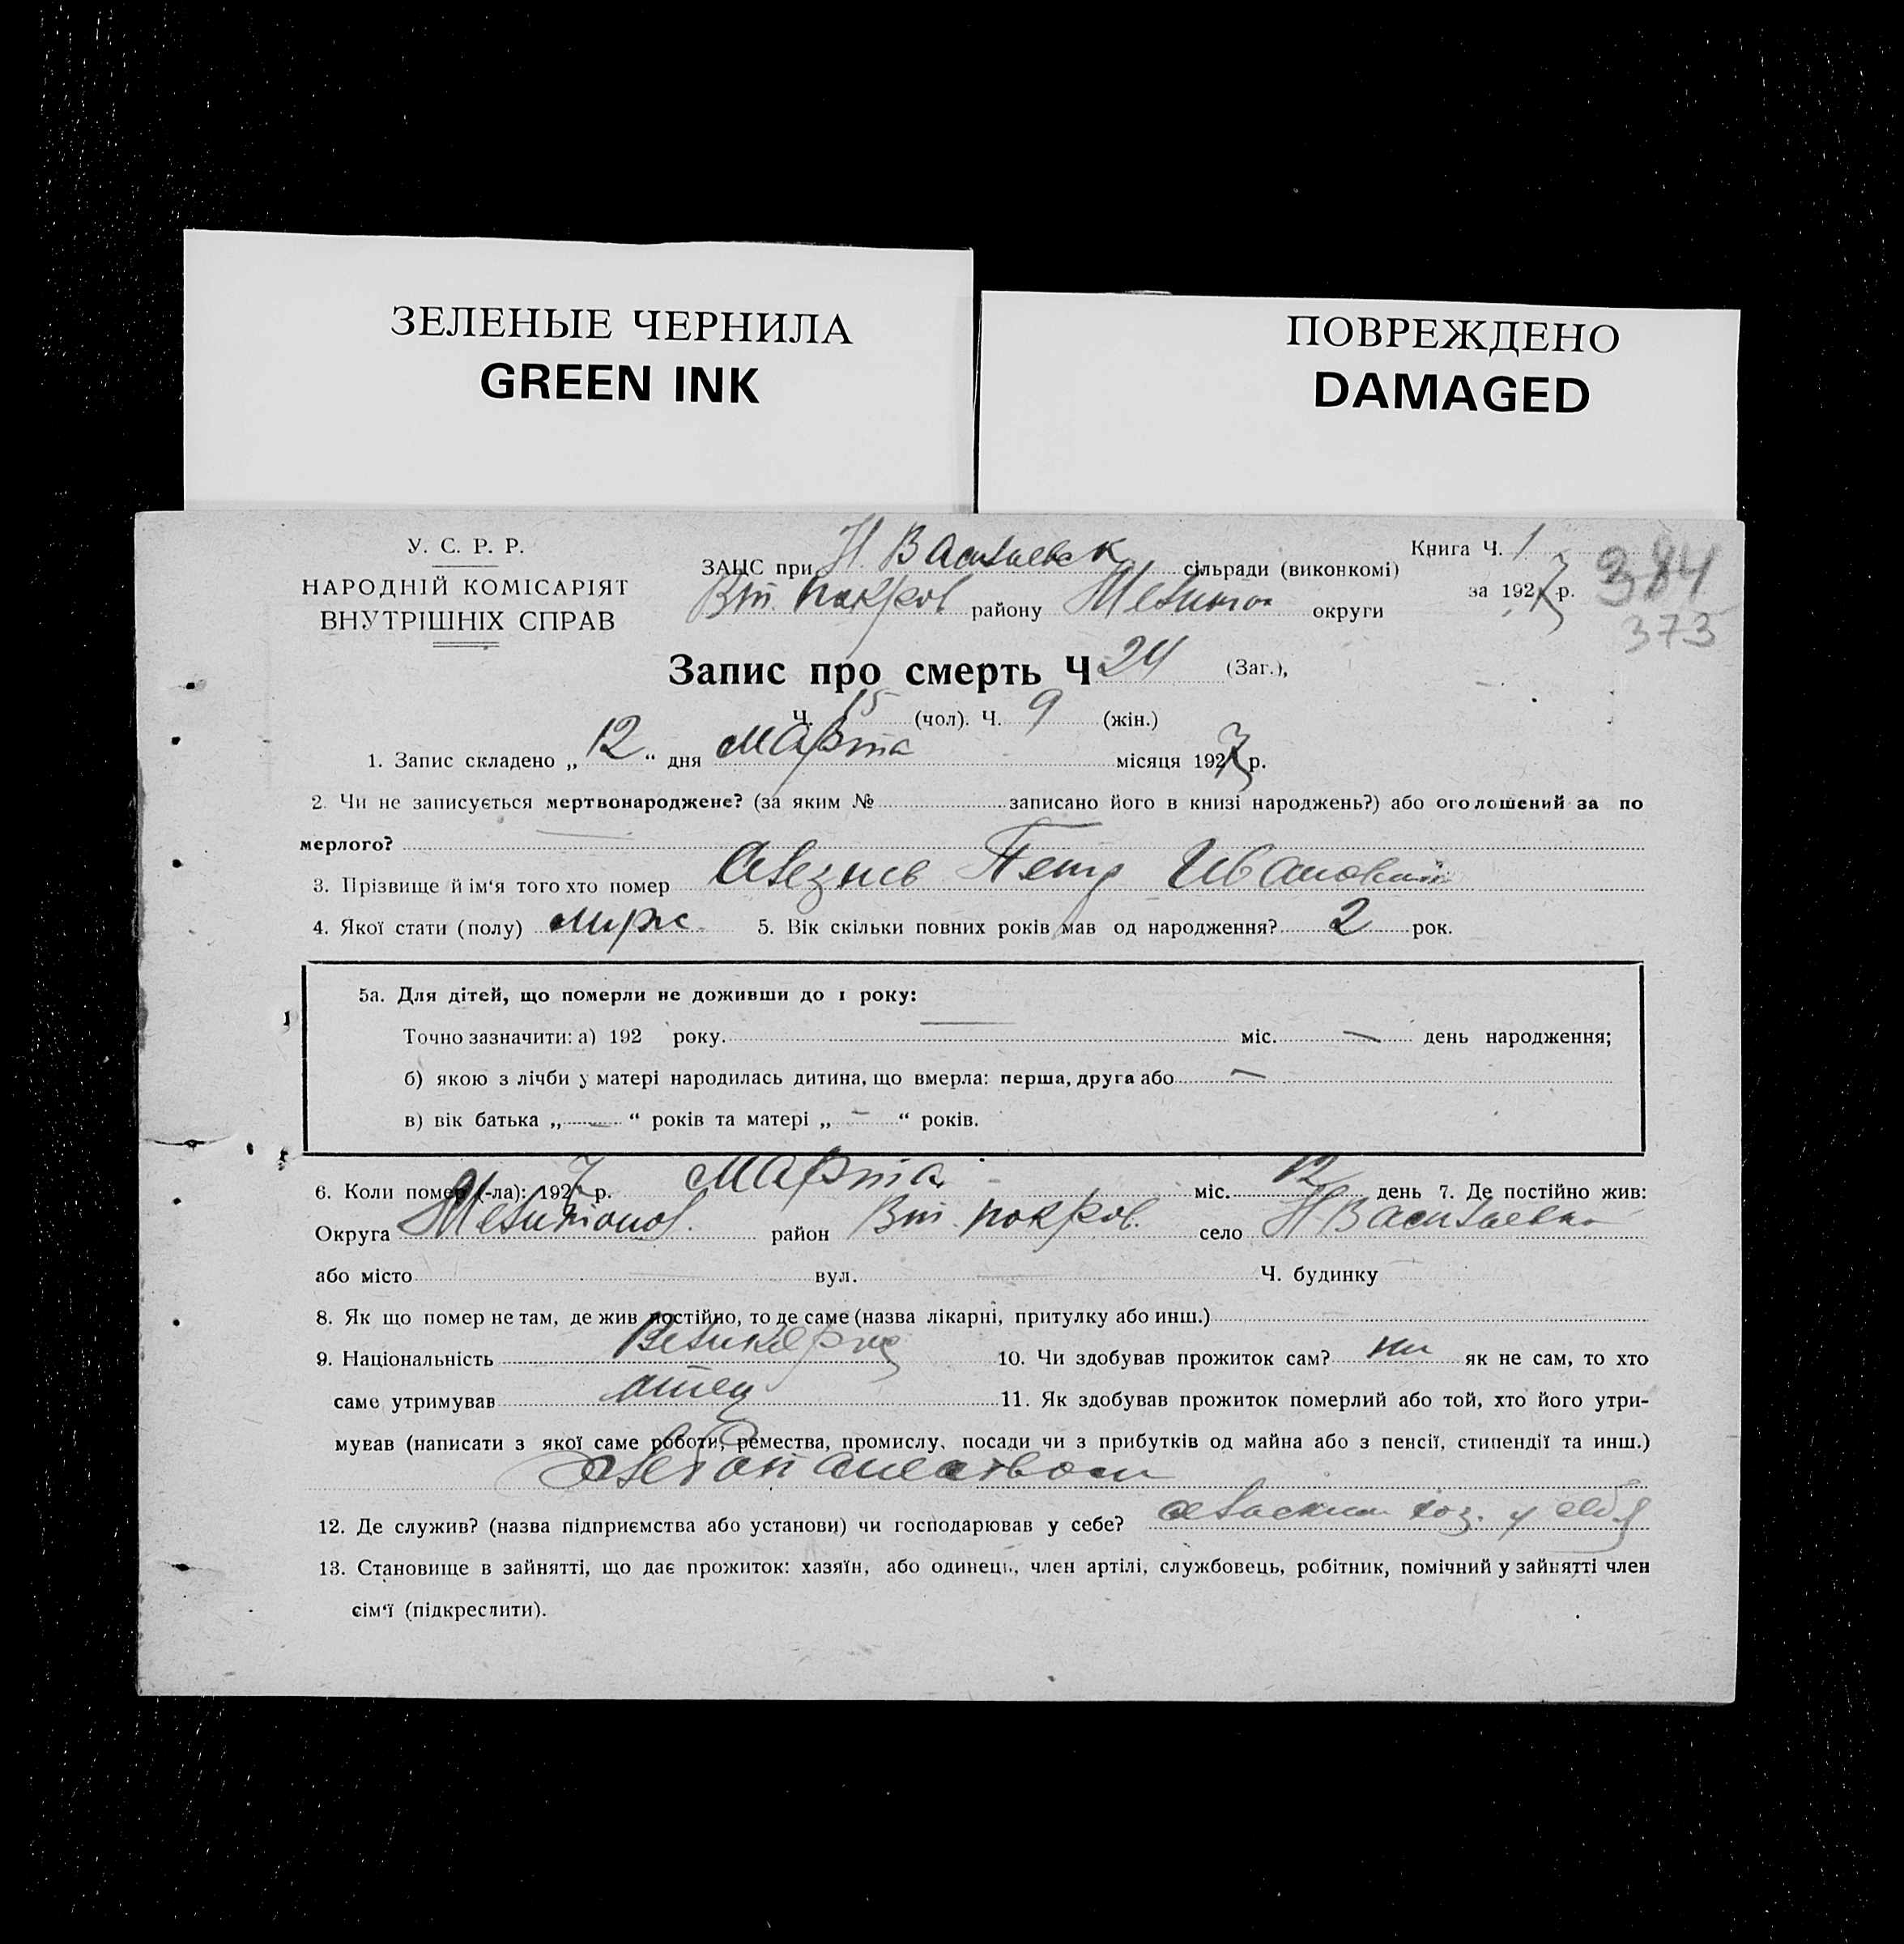 ЗЕЛЕНЫЕ ЧЕРНИЛА
GREEN INK
ПОВРЕЖДЕНО
DAMAGED
У. С. Р. Р.
НАРОДНІЙ КОМІСАРІЯТ
ВНУТРІШНІХ СПРАВ
ЗАЦС при Н. Васильевск сільради (виконкомі)
Вт. Покров району Мелитоп округи
Книга Ч. 1
за 1927 р.
384
373
Запис про смерть Ч 24 (Заг.),
Ч. 15 (чол). Ч. 9 (жін.)
1. Запис складено „ 12 “ дня Марта місяця 1927 р.
2. Чи не записується мертвонароджене? (за яким № записано його в книзі народжень?) або оголошений за по
мерлого?
3. Прізвище й ім‘я того хто помер Петр Иванович
4. Якої стати (полу) муж. 5. Вік скільки повних років мав од народження? 2 рок.
5а. Для дітей, що померли не доживши до 1 року:
Точно зазначити: а) 192 року. міс. — день народження;
б) якою з лічби у матері народилась дитина, що вмерла: перша, друга або —
в) вік батька „ — “ років та матері „ – “ років.
6. Коли помер (-ла): 1927 р. Марта міс. 12 день 7. Де постійно жив:
Округа Мелитопол. район Вт. покров. село Н Васильевка
або місто вул. Ч. будинку
8. Як що помер не там, де жив постійно, то де саме (назва лікарні, притулку або инш.)
9. Національність Великорус 10. Чи здобував прожиток сам? ни як не сам, то хто
саме утримував отец 11. Як здобував прожиток померлий або той, хто його утри-
мував (написати з якої саме роботи, ремества, промислу, посади чи з прибутків од майна або з пенсії, стипендії та инш.)
Хлебопашеством
12. Де служив? (назва підприємства або установи) чи господарював у себе? хоз. у себя
13. Становище в зайнятті, що дає прожиток: хазяїн, або одинець, член артілі, службовець, робітник, помічний у зайнятті член
сім‘ї (підкреслити).